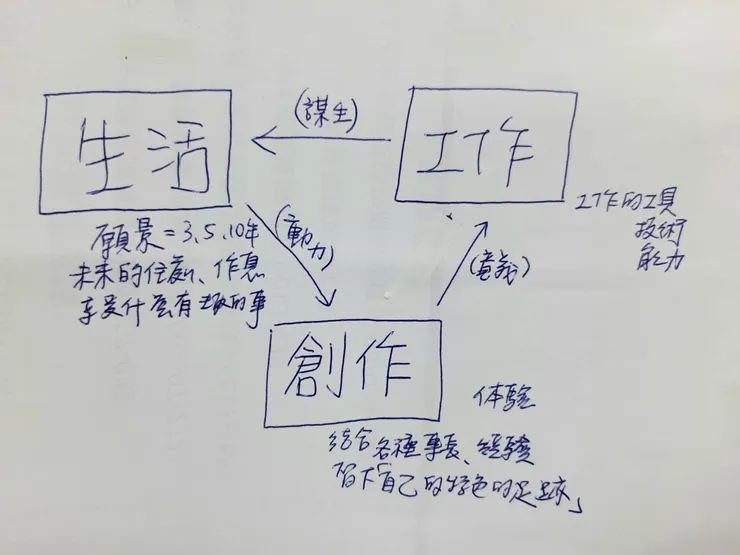 生活
(謀生)
工作
工作的工具
技術
能力
願景=3、5、10年
未來的住處、作息
享受什麼有趣的事
(動力)
(意義)
創作
体驗
結合各種專長、經驗
留下「自己的特色的足跡」